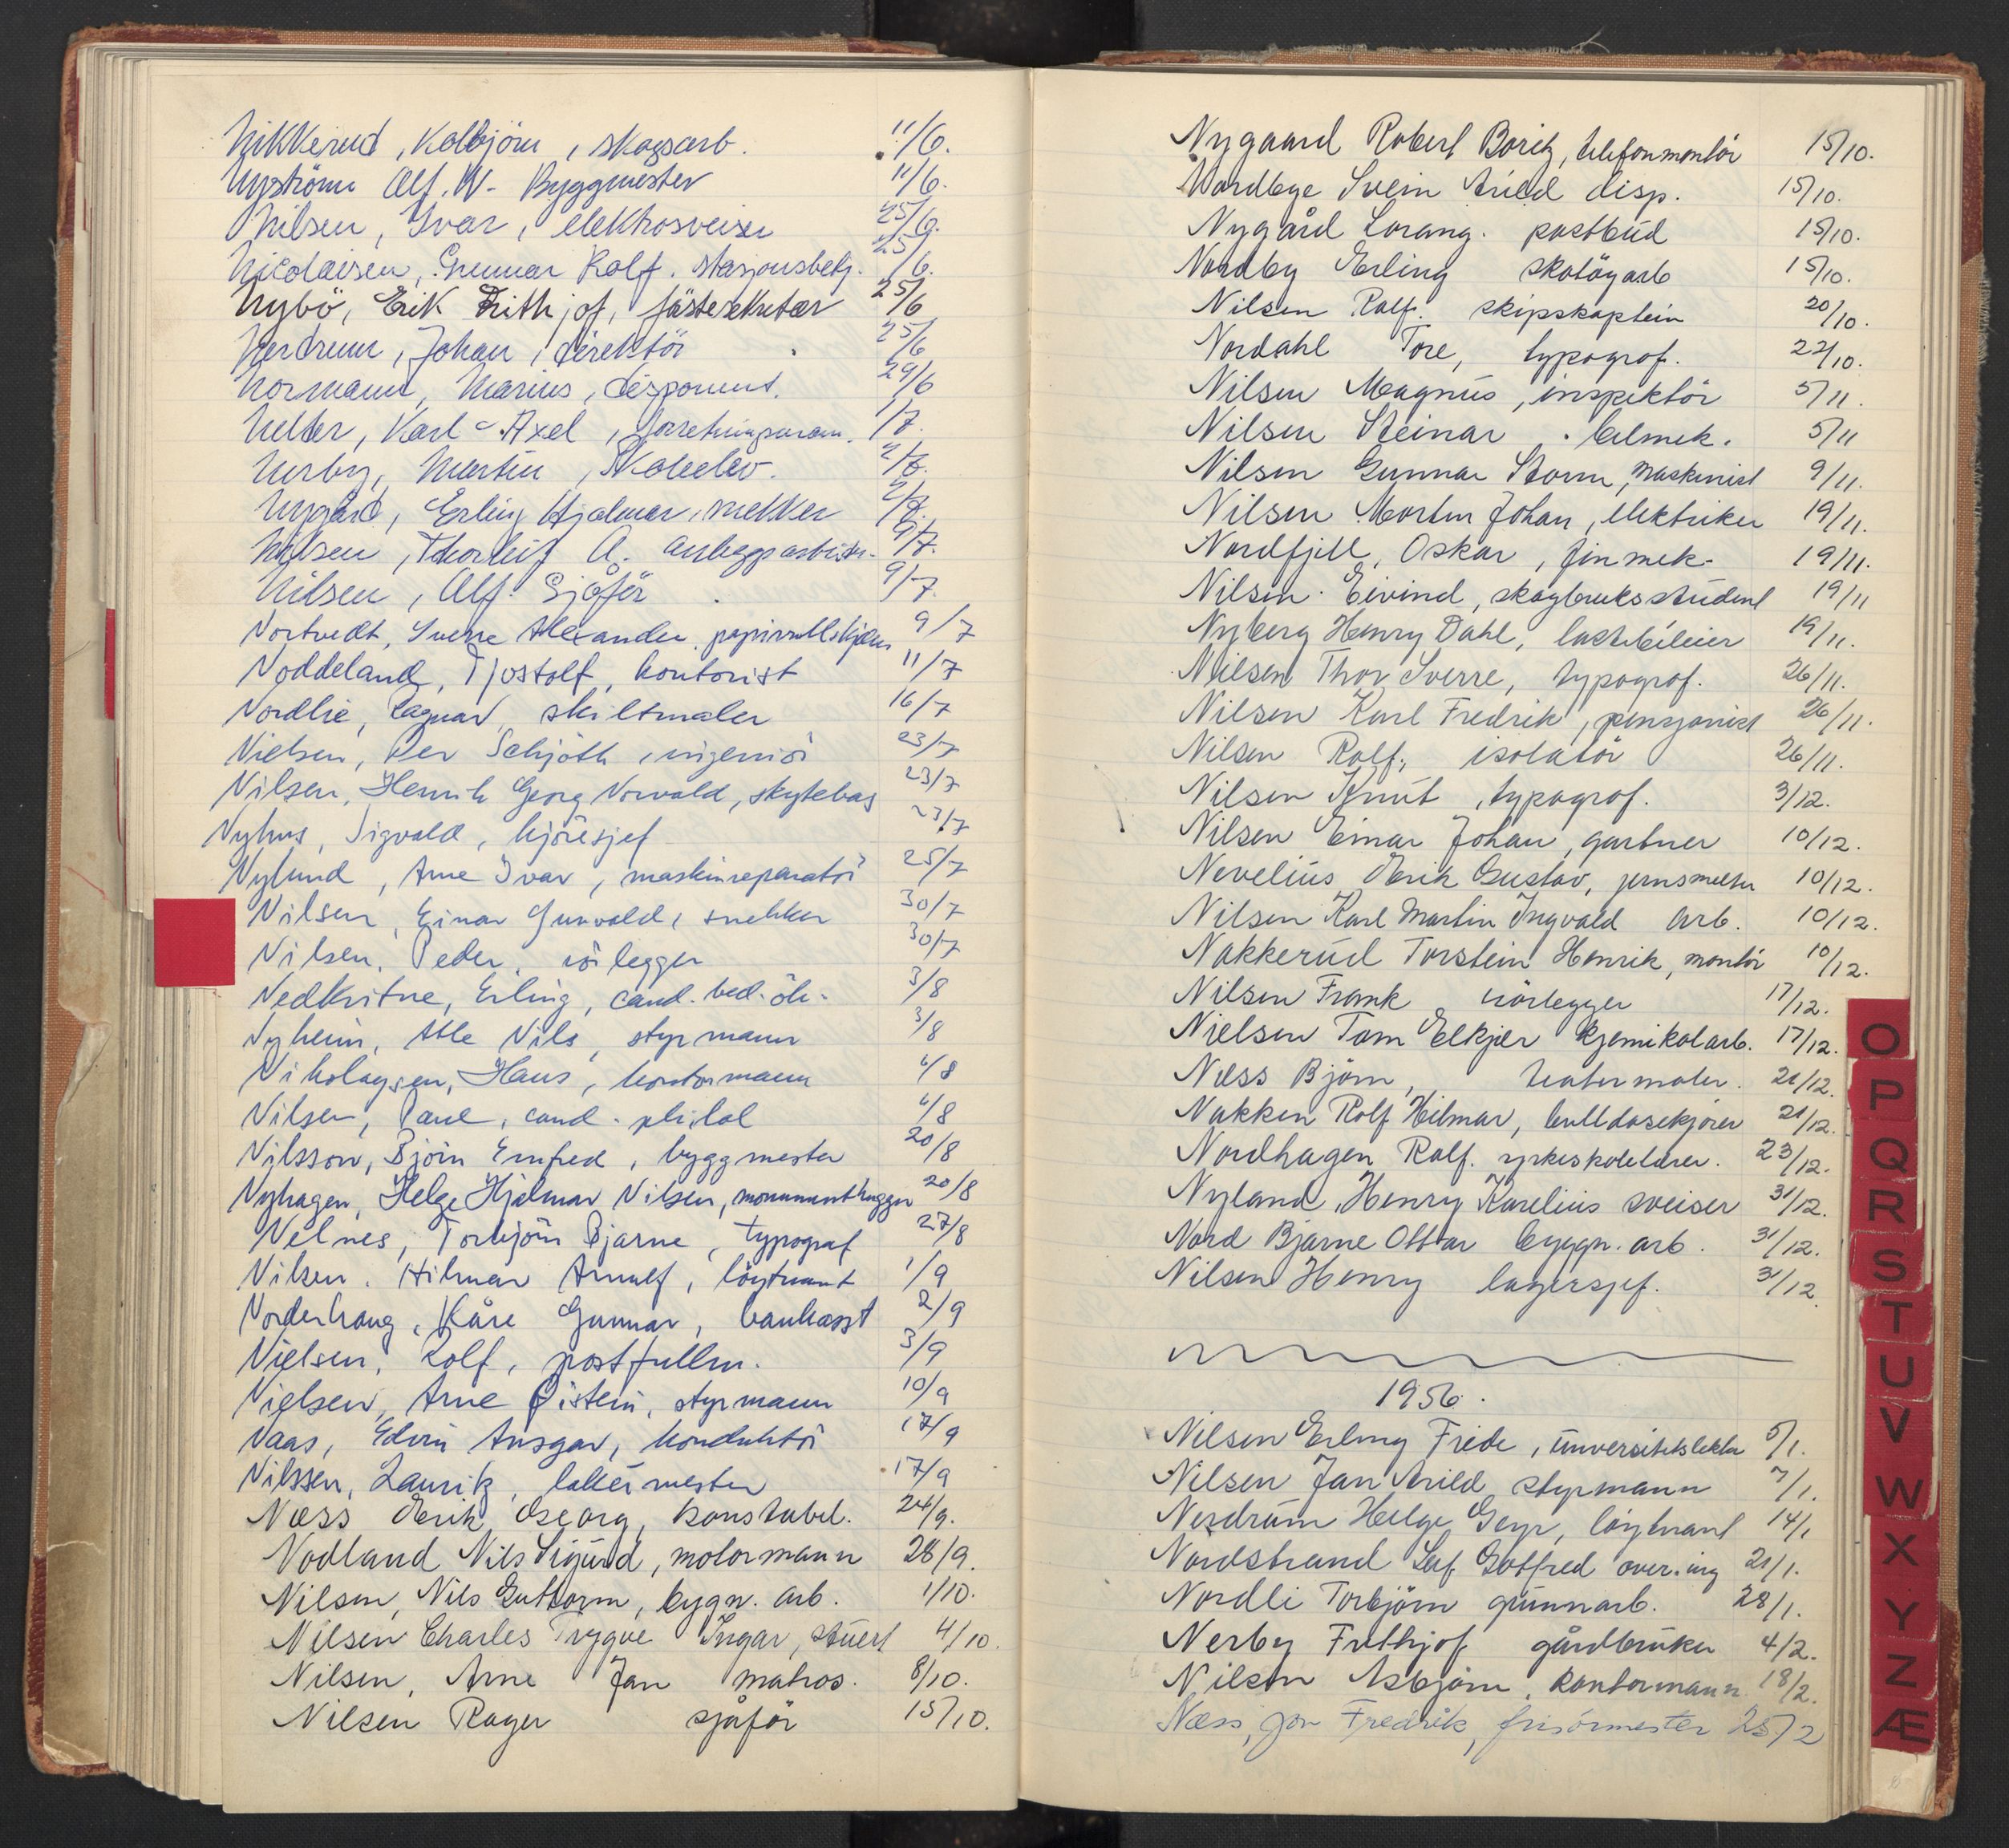 Nikkerud, Kolbjörn, skogsarb. 11/6.
Nyström Alf. W- Byggmester 11/6.
Nilsen, Ivar, elektrosveiser 25/6.
Nicolaisen, Gunnar Rolf. stasjonsbetj. 25/6.
Nybö, Erik Frithjof,förstesekretær 25/6
Nerdrum, Johan, direktör 25/6
Normann, Marius, disponent. 29/6
Karl-Axel, 1/7.
Nerby, Martin, 2/7.
Nygård, Erling Hjalmar, snekker 2/7.
Nilsen, Thorleif A. anleggsarbeider. 9/7.
Nilsen, Alf. Sjåför 9/7.
Nortvedt, Sverre Alexander 9/7
Noddeland, Tjostolf, kontorist 11/7
Nordlie, Ragnar, skiltmaler 16/7
Nielsen, Per Schjöth, ingeniör 23/7
Nilsen, Henrik Georg Norvald, skytebas 23/7
Nyhus, Sigvald, kjöresjef 23/7
Nylund, Arne Ivar, maskinreparatör 25/7
Nilsen, Einar Gunvald, snekker 30/7
Nilsen, Peder, rörlegger 30/7
Nedkvitne, Erling, cand. bed. ök. 3/8
Nyheim, Atle Nils, styrmann 3/8
Nikolaysen, Hans, kontormann 6/8
Nilsen, Paul, cand. philol 6/8
Nilsson, Björn Emfred, byggmester 20/8
Nyhagen, Helge Hjelmar Nilsen, monumenthugger 20/8
Nelnes, Torbjörn Bjarne, typograf 27/8
Nilsen. Hilmar Arnulf, löytnant 1/9
Norderhaug, Kåre Gunnar, bankasst 2/9
Nielsen, Rolf, postfullm. 3/9
Nielsen, Arne Øistein, styrmann 10/9
Naas, Edvin Ansgar, konduktör 17/9
Nilssen, Lauritz, malermester 17/9
Næss Erik Georg, konstabel. 24/9.
Nodland Nils Sigurd, motormann 28/9.
Nilsen, Nils Guttorm, bygn. arb. 1/10.
Nilsen Charles Trygve Ingar, stuert 4/10.
Nilsen, Arne Jan matros. 8/10.
Nilsen Roger sjåför 15/10.
Nygaard Robert Boritz, telefonmontör 15/10.
Nordbye Svein Arild disp. 15/10.
Nygård Lorang. postbud 15/10.
Nordby Erling skotöyarb 15/10.
Nilsen Rolf. skipskaptein 20/10.
Nordahl Tore, typograf. 22/10.
Nilsen Magnus, inspektör 5/11.
Nilsen Steinar. bilmek. 5/11
Nilsen Gunnar Storm, maskinist 9/11.
Nilsen Morten Johan, elektriker 19/11.
Nordfjell, Oskar, finmek. 19/11.
Nilsen Eivind, skogbruksstudent 19/11
Nyberg Henry Dahl, lastebileier 19/11.
Nilsen Thor Sverre, typograf. 26/11.
Nilsen Karl Fredrik, pensjonist 26/11.
Nilsen Rolf, isolatör 26/11.
Nilsen Knut, typograf. 3/12.
Nilsen Einar Johan, gartner 10/12.
Nevelius Erik Gustav, 10/12.
Nilsen Karl Martin Ingvald arb. 10/12.
Nakkerud Torstein Henrik, montör 10/12.
Nilsen Frank rörlegger 17/12.
Nielsen Tom Elkjer kjemikalarb. 17/12.
Næss Björn, teatermaler. 21/12.
Nakken Rolf Hilmar, bulldosekjörer 21/12.
Nordhagen Rolf. yrkeskolelærer. 23/12.
Nyland, Henry Karelius sveiser 31/12.
Nord Bjarne Ottar bygn. arb. 31/12.
Nilsen Henry lagersjef. 31/12.
1956.
Nilsen Erling Frede, universitetslektor 5/1.
Nilsen Jan Arild styrmann 7/1.
Nerdrum Helge Geyr, löytnant 14/1
Nordstrand Leif Gotfred over.ing 21/1.
Nordli Torbjörn grunnarb. 28/1.
Nerby Frithjof gårdbruker 4/2.
Nilsen Asbjörn, kontormann 18/2.
Næss, Jon Fredrik, frisörmester 25/2
O
P
Q
R
S
T
U
V
W
X
Y
Z
Æ